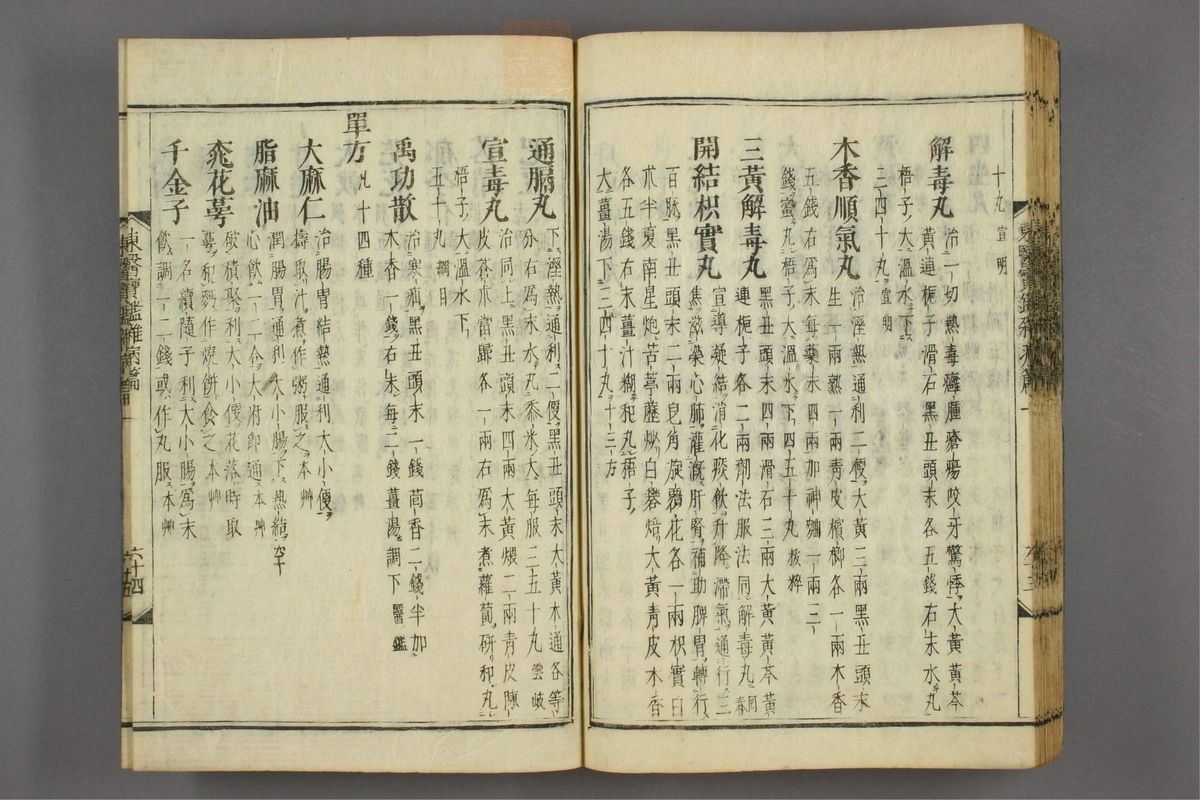 十丸宣明
解毒丸治一切熱毒癰腫瘡瘍咬牙驚悸大黃黃芩
黃連梔子滑石黑丑頭末各五錢右末水丸
梧子大溫水下
三四十丸宣明
木香順氣丸治溼熱通利二便大黃三兩黑丑頭末
生一兩熟一兩靑皮檳榔各一兩木香
五錢右爲末每藥末四兩加神麴一兩二
錢蜜丸梧子大溫水下四五十丸拔粹
三黃解毒丸黑丑頭末四兩滑石三兩大黃黃芩黃
連梔子各二兩劑法服法同解毒丸回春
開結枳實丸宣導凝結消化痰飮升降滯氣通行三
焦滋榮心肺灌漑肝腎補助脾胃轉行
百脈黑丑頭末二兩皂角旋覆花各一兩枳實白
朮半夏南星炮苦葶藶炒白礬焙大黃靑皮木香
各五錢右末薑汁糊和丸梧子
大薑湯下三四十丸十三方
通膈丸下溼熱通利二便黑丑頭末大黃木通各等
分右爲末水丸黍米大每服三五十丸雲岐
宣毒丸治同上黑丑頭末四兩大黃煨二兩靑皮陳
皮蒼朮當歸各一兩右爲末煮蘿蔔硏和丸
梧子大溫水下
五十丸綱目
禹功散治寒疝黑丑頭末一錢茴香二錢半加
木香一錢右末每二錢薑湯調下醫鑑
單方凡十四種
大麻仁治腸胃結熱通利大小便
擣取汁煮作粥服之本艸
脂麻油潤腸胃通利大小腸下熱結空
心飮一二合大府卽通本艸
桃花蕚破積聚利大小便花落時取
蕚和麪作燒餅食之本艸
千金子一名續隨子利大小腸爲末
飮調一二錢或作丸服本艸
東醫寶鑑雜病篇一
六十四